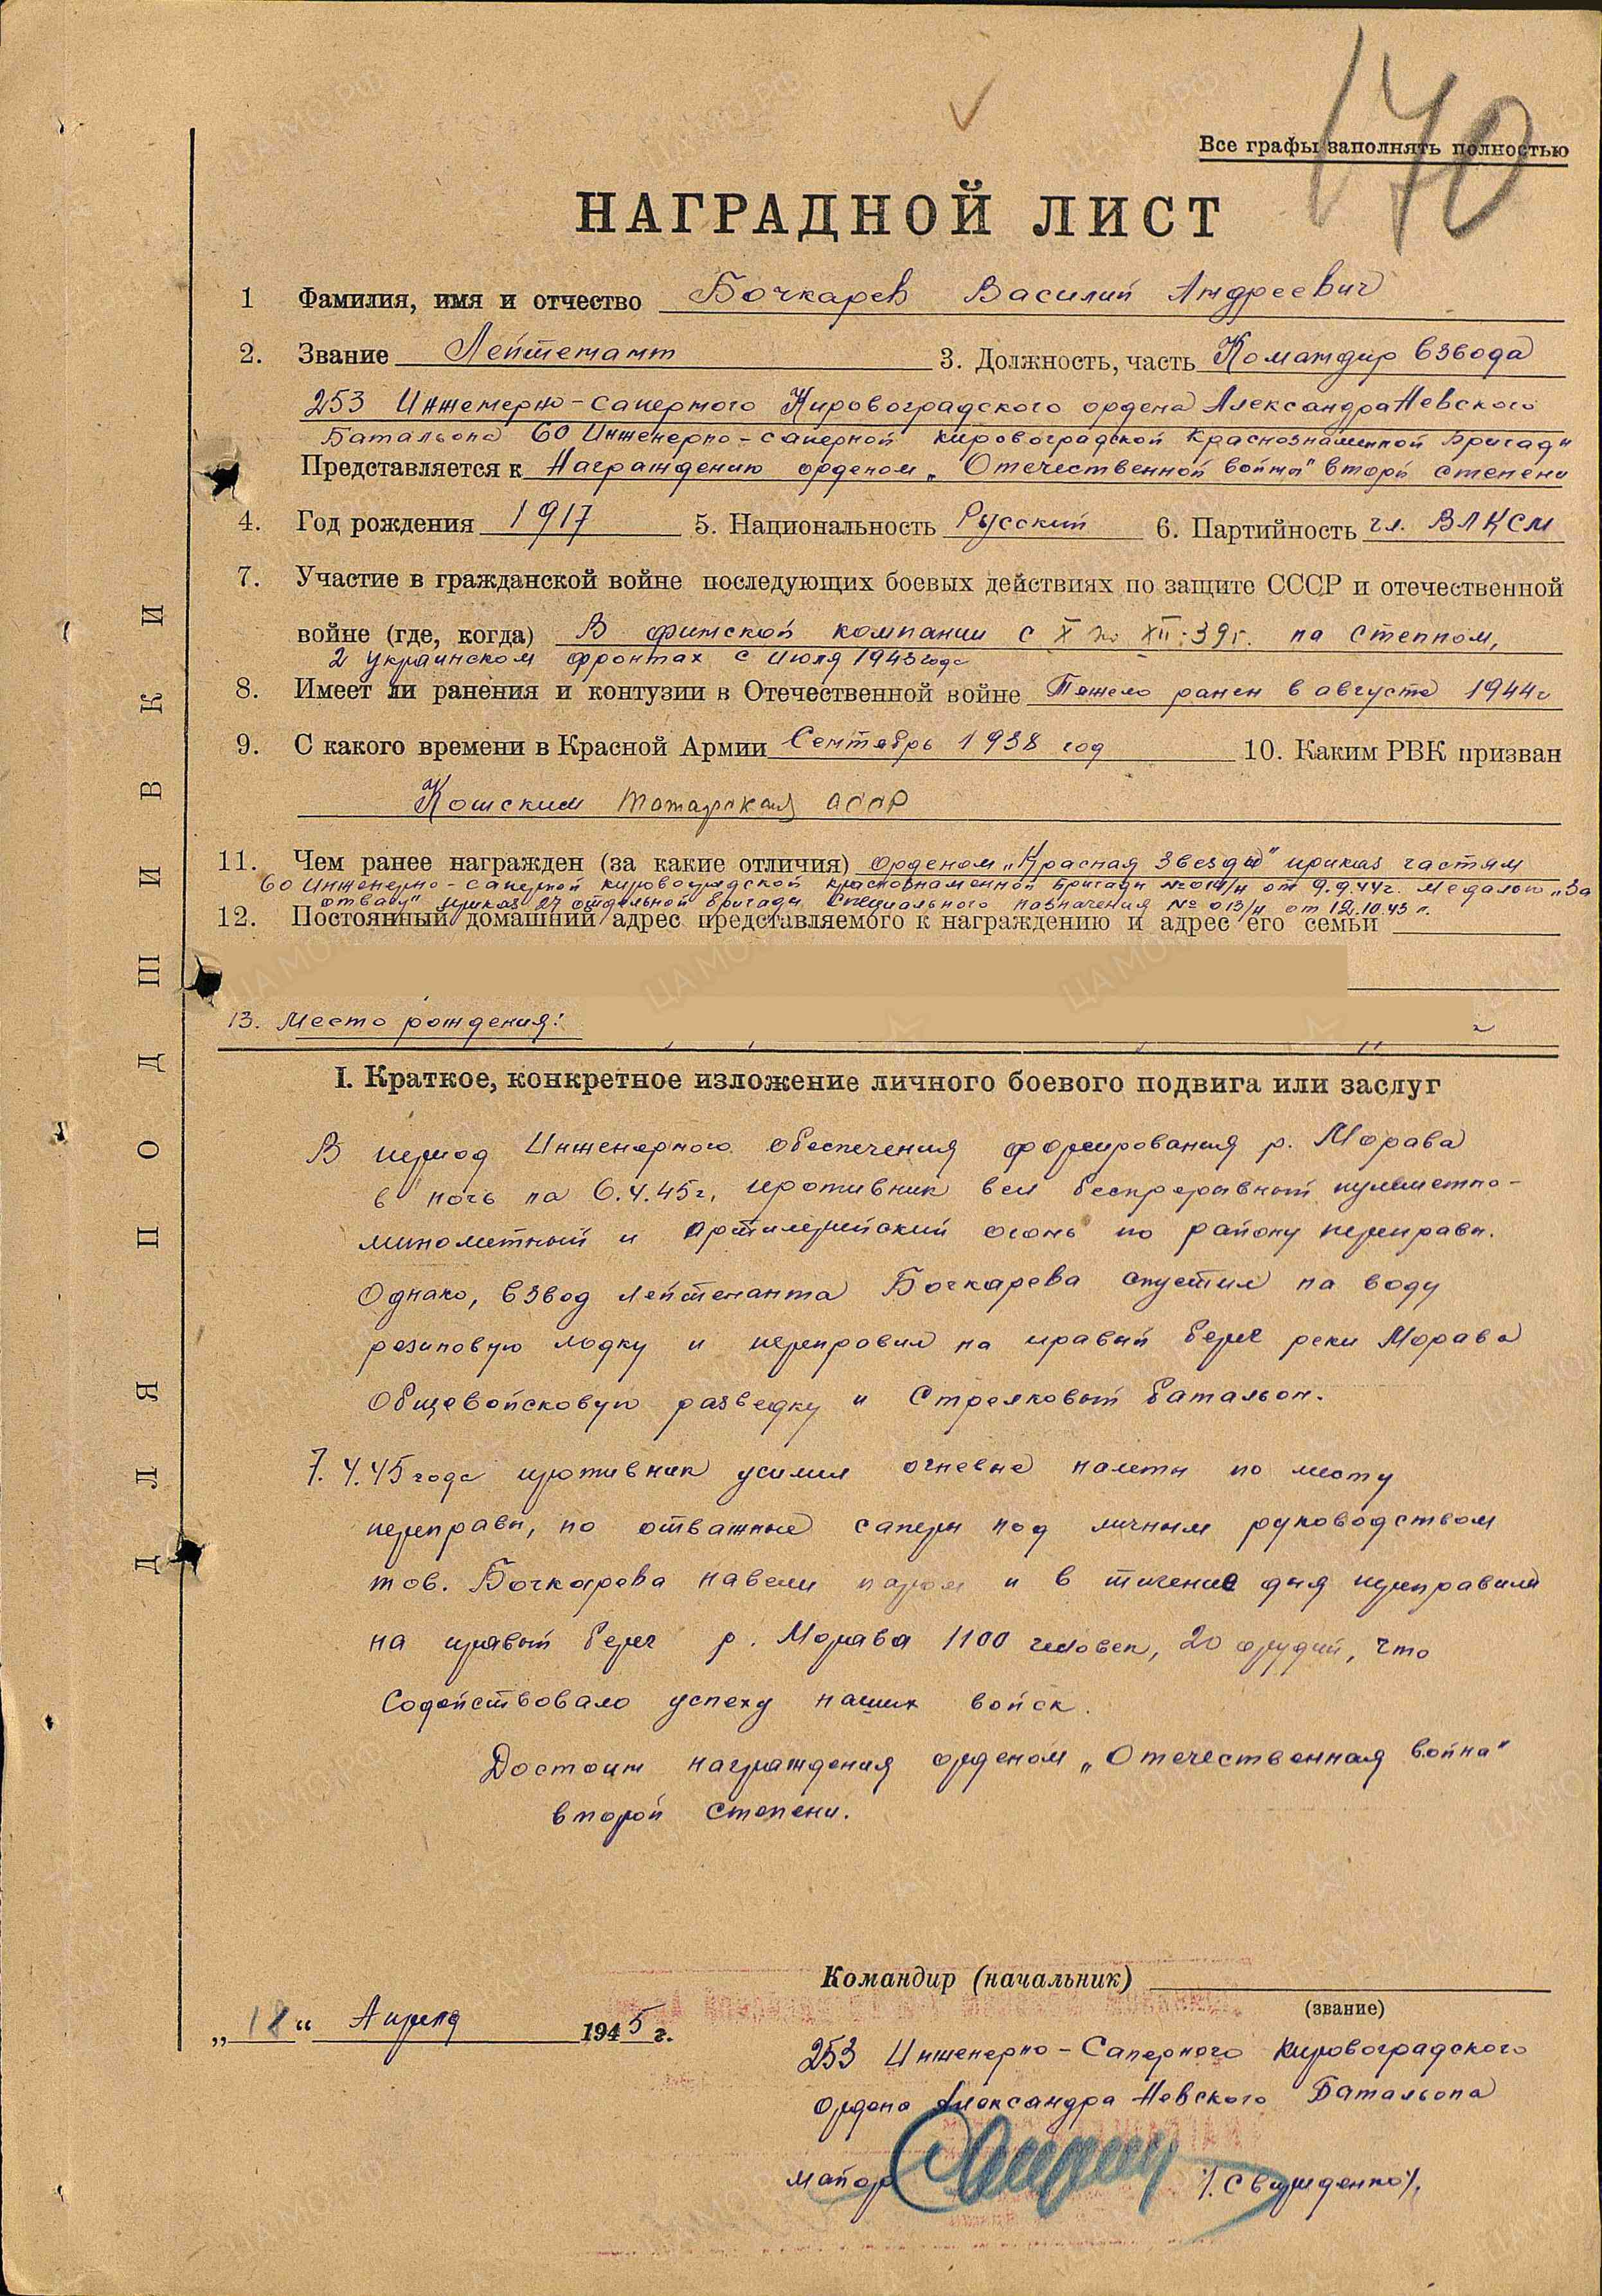 170
Все графы заполнять полностью
НАГРАДНОЙ ЛИСТ
1 Фамилия, имя и отчество Бочкарев Василий Андреевич
2. Звание Лейтенант 3. Должность, часть Командир взвода
253 Инженерно-саперного Кировоградского ордена Александра Невского
Батальона 60 Инженерно-саперной Кировоградской Краснознаменной Бригады
Представляется к Награждению орденом „Отечественной войны" вторй степени
4. Год рождения 1917 5. Национальность Русский 6. Партийность чл. ВЛКСМ
7. Участие в гражданской войне последующих боевых действиях по защите СССР и отечественной
войне (где, когда) В финской компании с X по XII-39г. на Степном,
2 украинском фронтах с июля 1943 года
8. Имеет ли ранения и контузии в Отечественной войне Тяжело ранен в августе 1944г
9. С какого времени в Красной Армии Сентябрь 1938 год 10. Каким РВК призван
Кошским Татарская АССР
11. Чем ранее награжден (за какие отличия) орденом „Красная Звезда" приказ частям
60 Инженерно-саперной Кировоградской Краснознаменной Бригады от 9.9.44г. Медалью „За
отвагу" приказ 27 отдельной бригады Специального назначения № 013/н от 12.10.43 г.
12. Постоянный домашний адрес представляемого к награждению и адрес его семьи
13. Место рождения:
I. Краткое, конкретное изложение личного боевого подвига или заслуг
В период Инженерного обеспечения форсирования р. Морава
в ночь на 6.4.45г, противник вел беспрерывный пулеметно-
минометный и артилерийский огонь по району переправы.
Однако, взвод лейтенанта Бочкарева спустил на воду
резиновую лодку и переправил на правый берег реки Морава
Общевойсковую разведку и Стрелковый батальон.
7.4.45 года противник усилил огневые налеты по месту
переправы, но отважные саперы под личным руководством
тов. Бочкарева навели паром и в течение дня переправили
на правый берег р. Морава 1100 человек, 20 орудий, что
Содействовало успеху наших войск.
Достоин награждения орденом „Отечественная война"
второй степени.
Командир (начальник)
(звание)
„18" Апреля 1945 г.
253 Инженерно-Саперного Кировоградского
Ордена Александра Невского Батальона
майор /Свириденко/.
ДЛЯ ПОДШИВКИ
ЦАМО.РФ